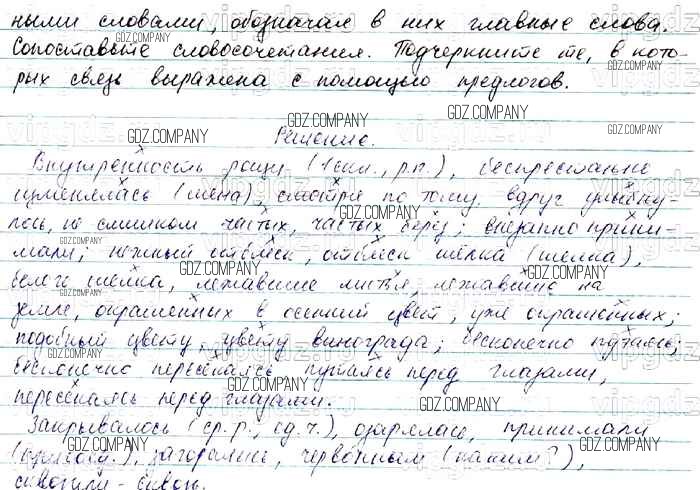 ными словами, обозначая в них главные слова.
Сопоставьте словосочетания. Подчеркните те, в кото-
рых связь выражена с помощью предлогов.
Решение.
Внутренность рощи (1 скл., р.п.), беспрестанно
изменялась (мена), смотря по тому, вдруг улыбну-
лось, не слишком частых, частых берёз; внезапно прини-
мали; нежный отблеск, отблеск шёлка (шелка),
белого шёлка, лежавшие листья, лежавшие на
земле, окрашенных в осенний цвет, уже окрашенных;
подобный цвету, цвету винограда; бесконечно путаясь;
бесконечно пересекаясь, путаясь перед глазами,
пересекаясь перед глазами.
Закрывалось (ср.р., ед.ч.), озарялась, принимали
загорелись, червонным (каким?),
GDZ.COMPANY
vipgdz.ru